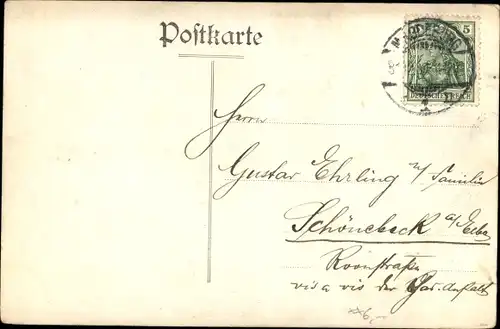 Postkarte
5
MAGDEBURG
DEUTSCHES REICH
Herrn
Gustav Ehrling u/ Familie
Schönebeck a/Elbe
Roonstraße
vis a vis der Gas-Anstalt